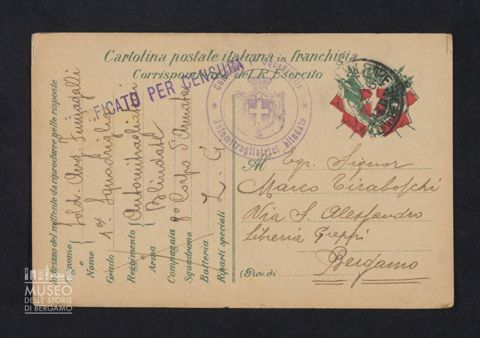 Cartolina postale italiana in franchigia
Corrispondenza del R. Esercito
VERIFICATO PER CENSURA
Automitragliatrici Blindate
Indirizzo del mittente da riprodurre nelle risposte
Cognome
Nome Sold. Fumagalli
Grado 1a Squadriglia
Reggimento Automitragliatrici
Arma Blindate
Compagnia 8° Corpo d'Armata
Squadrone
Batteria Z. G.
Riparti speciali
Al Egr. Signor
Marco Tiraboschi
Via S. Alessandro
libreria Greppi
Bergamo
(Prov. di
MUSEO
DELLE STORIE
DI BERGAMO